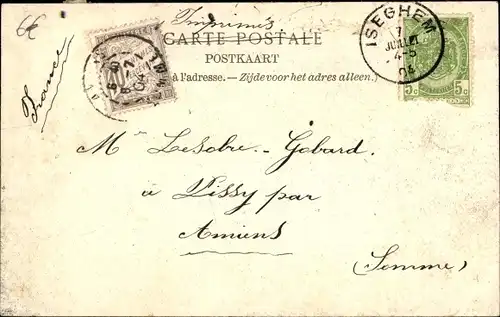 6€
Imprimés
CARTE POSTALE
POSTKAART
à l'adresse. – Zijde voor het adres alleen.
France
ISEGHEM
7
JUILLET
4-5
04
5c 5c
Mr Lesobre-Gobard.
à Pissy par
Amiens
(Somme)